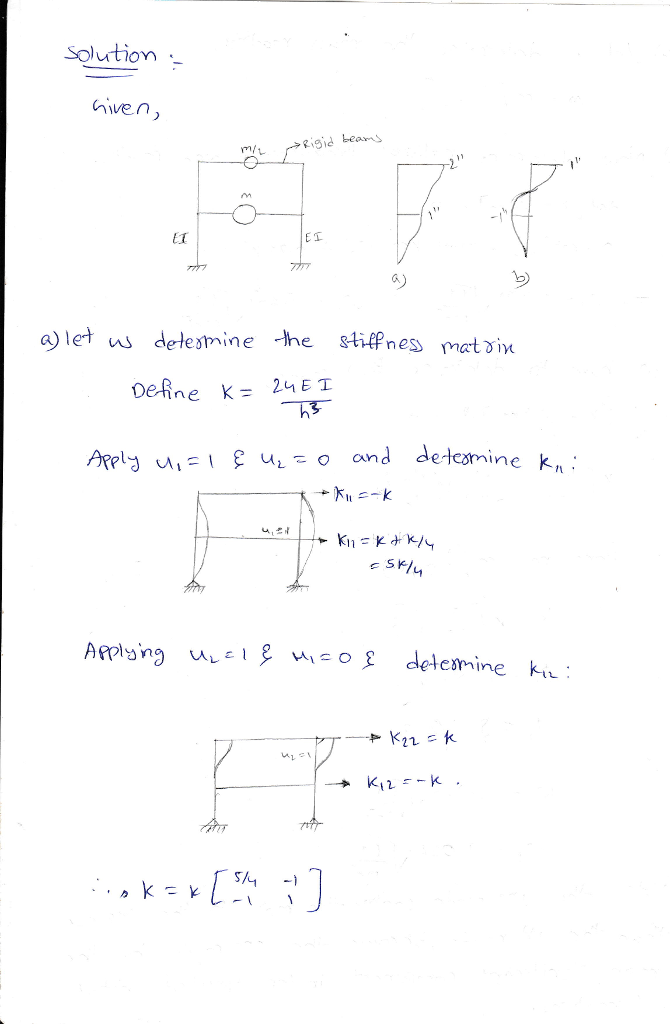 Solution :-
Given,
m/2 → Rigid beams
m
EI EI
2"
1"
a)
1"
-1"
b)
a) let us determine the stiffness matrix
Define K = 24EI / h³
Apply u₁=1 & u₂=0 and determine K₁₁:
K₁₁ = -K
u₁=1
K₁₁ = K + K/4
= 5K/4
Applying u₂=1 & u₁=0 & determine K₁₂:
K₂₂ = K
u₂=1
K₁₂ = -K .
∴ K = K [ 5/4 -1
-1 1 ]